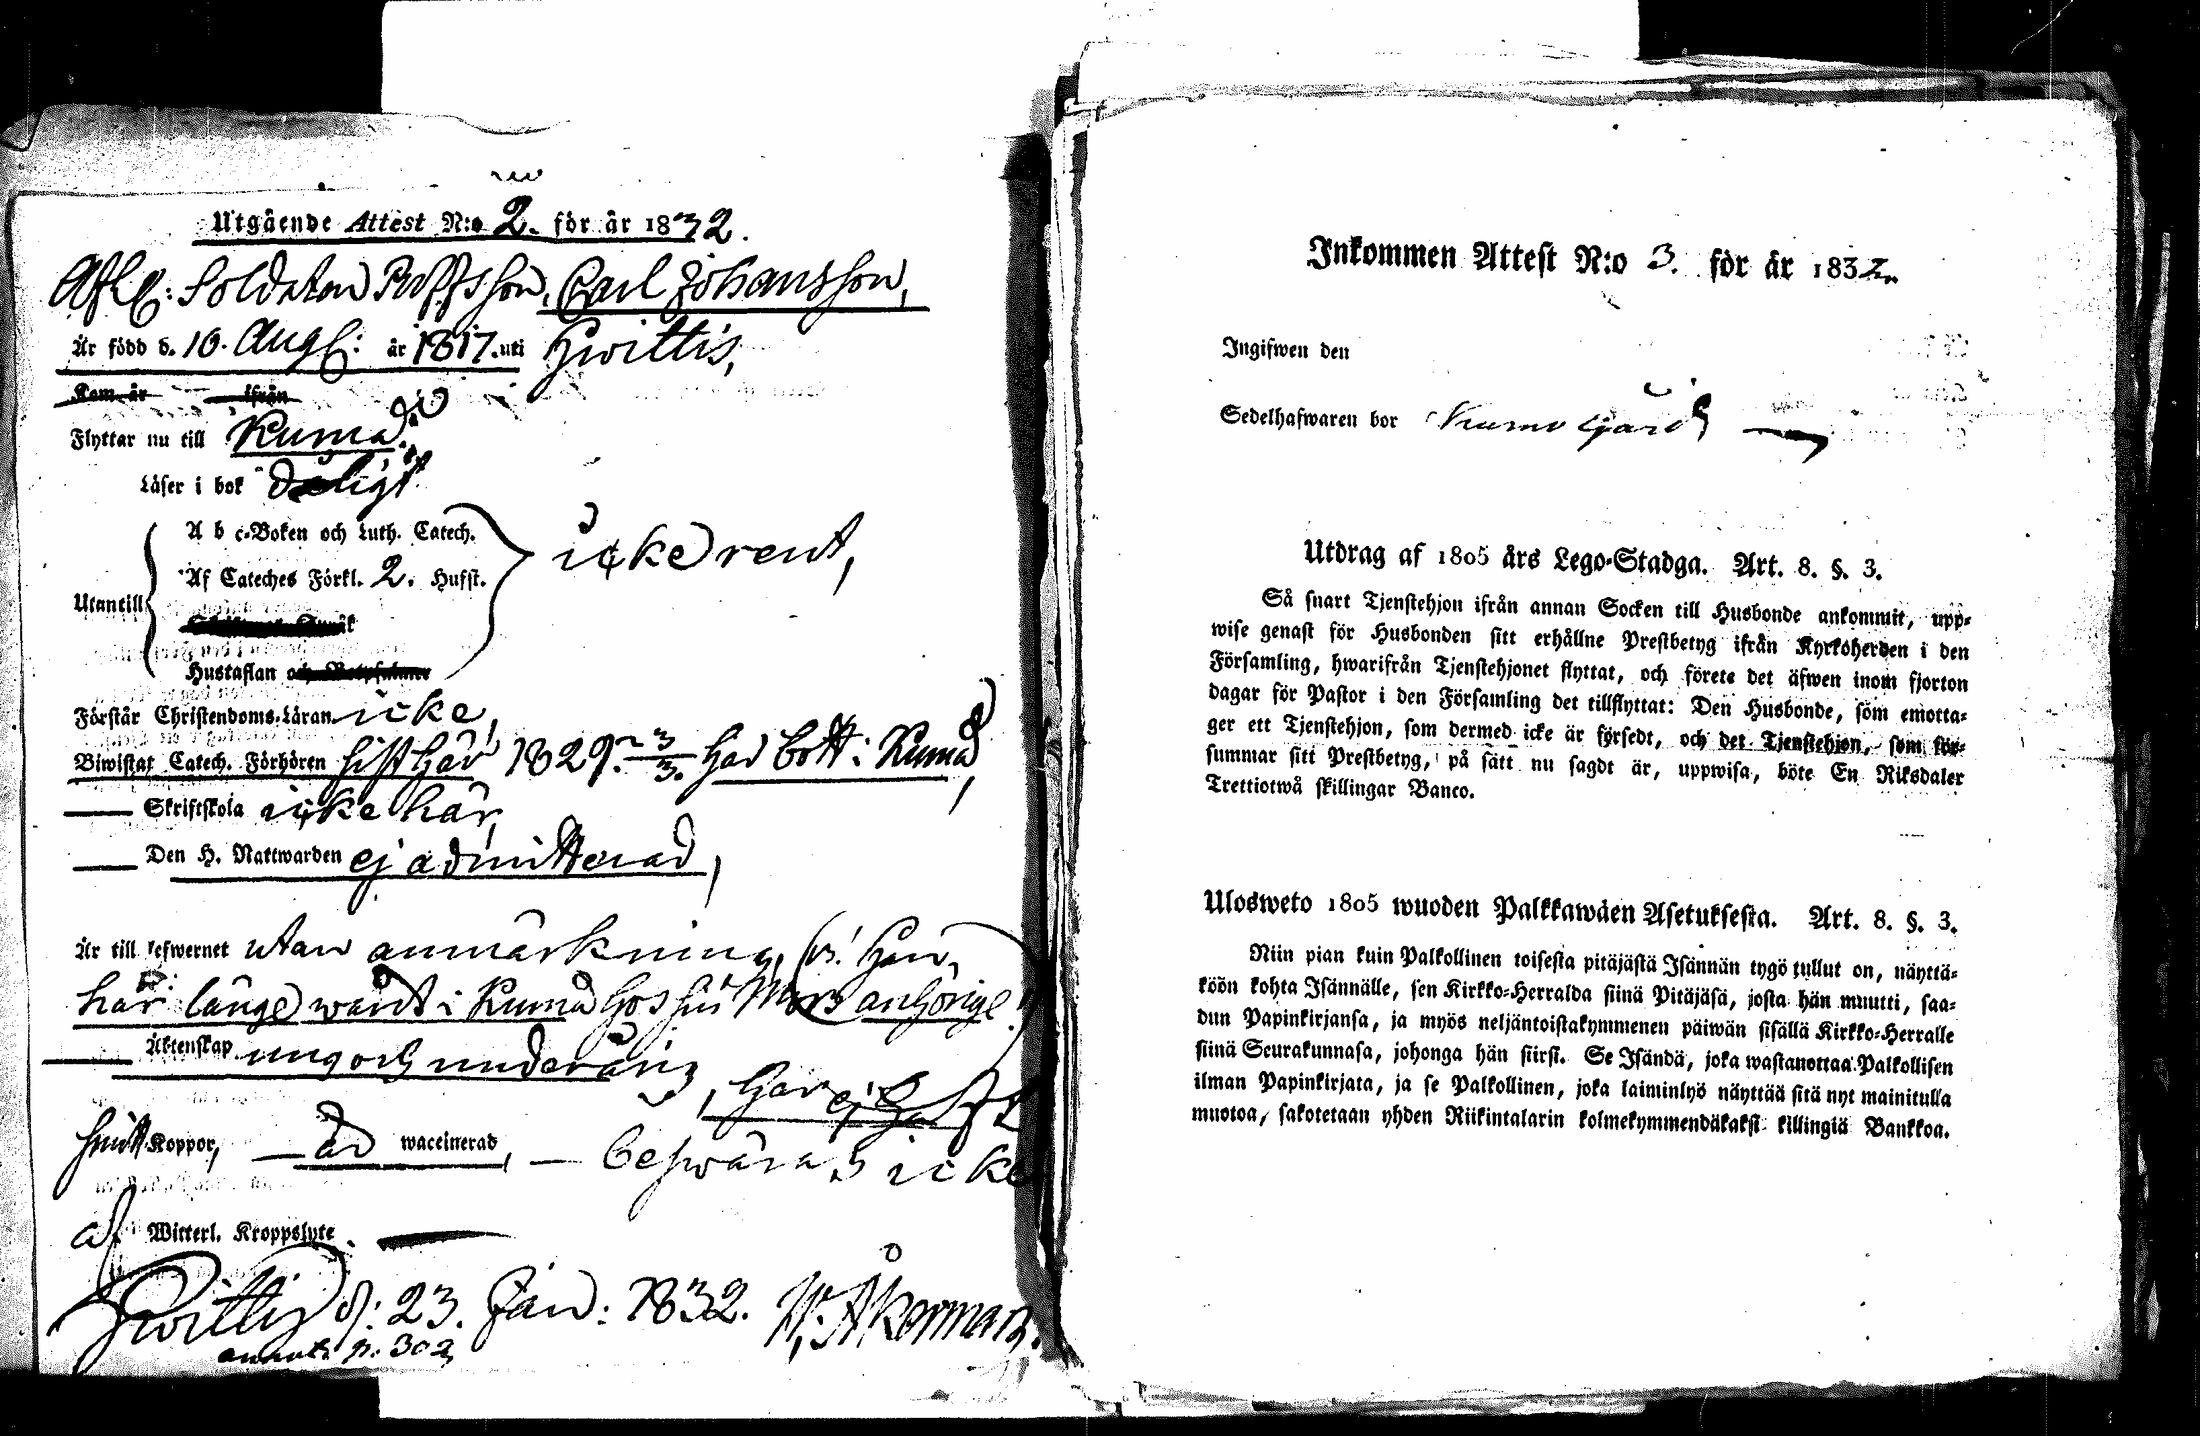 Utgående Attest N:o 2. för år 1832.
Afl: Soldaten Carl Johansson,
Är född d. 10. Aug: år 1817. uti Hwittis,
Kom år ifrån
Flyttar nu till Kumo
Läser i bok dåligt
A b c-Boken och Luth. Catech.
icke rent,
Af Cateches Förkl. 2. Hufst.
Utantill
Hustaflan och Botpsalmer
Förstår Christendoms-Läran icke,
Biwistat Catech. Förhören sist här 1829. 3/3. Har bott i Kumo,
Skriftskola icke här,
Den H. Nattwarden ej admitterad,
Är till lefwernet utan anmärkning, Han
här länge warit i Kumo hos sin Mors anhörige
Äktenskap ung och underårig,
Har ej haft
Koppor, är waccinerad, — beswäras icke
af Witterl. Kroppslyte.
Hwittis d: 23. Jan: 1832. Åkerman.
annot. p. 302
Inkommen Attest N:o 3. för år 1832.
Ingifwen den
Sedelhafwaren bor Kumo Gård
Utdrag af 1805 års Lego-Stadga. Art. 8. §. 3.
Så snart Tjenstehjon ifrån annan Socken till Husbonde ankommit, upp-
wise genast för Husbonden sitt erhållne Prestbetyg ifrån Kyrkoherden i den
Församling, hwarifrån Tjenstehjonet flyttat, och förete det äfwen inom fjorton
dagar för Pastor i den Församling det tillflyttat: Den Husbonde, som emotta-
ger ett Tjenstehjon, som dermed icke är försedt, och det Tjenstehjon, som för-
summar sitt Prestbetyg, på sätt nu sagdt är, uppwisa, böte En Riksdaler
Trettiotwå skillingar Banco.
Ulosweto 1805 wuoden Palkkawäen Asetuksesta. Art. 8. §. 3.
Niin pian kuin Palkollinen toisesta pitäjästä Isännän tygö tullut on, näyttä-
köön kohta Isännälle, sen Kirkko-Herralda siinä Pitäjäsä, josta hän muutti, saa-
dun Papinkirjansa, ja myös neljäntoistakymmenen päiwän sisällä Kirkko-Herralle
siinä Seurakunnasa, johonga hän siirst. Se Isändä, joka wastanottaa Palkollisen
ilman Papinkirjata, ja se Palkollinen, joka laiminlyö näyttää sitä nyt mainitulla
muotoa, sakotetaan yhden Riikintalarin kolmekymmendäkaksi killingiä Bankkoa.